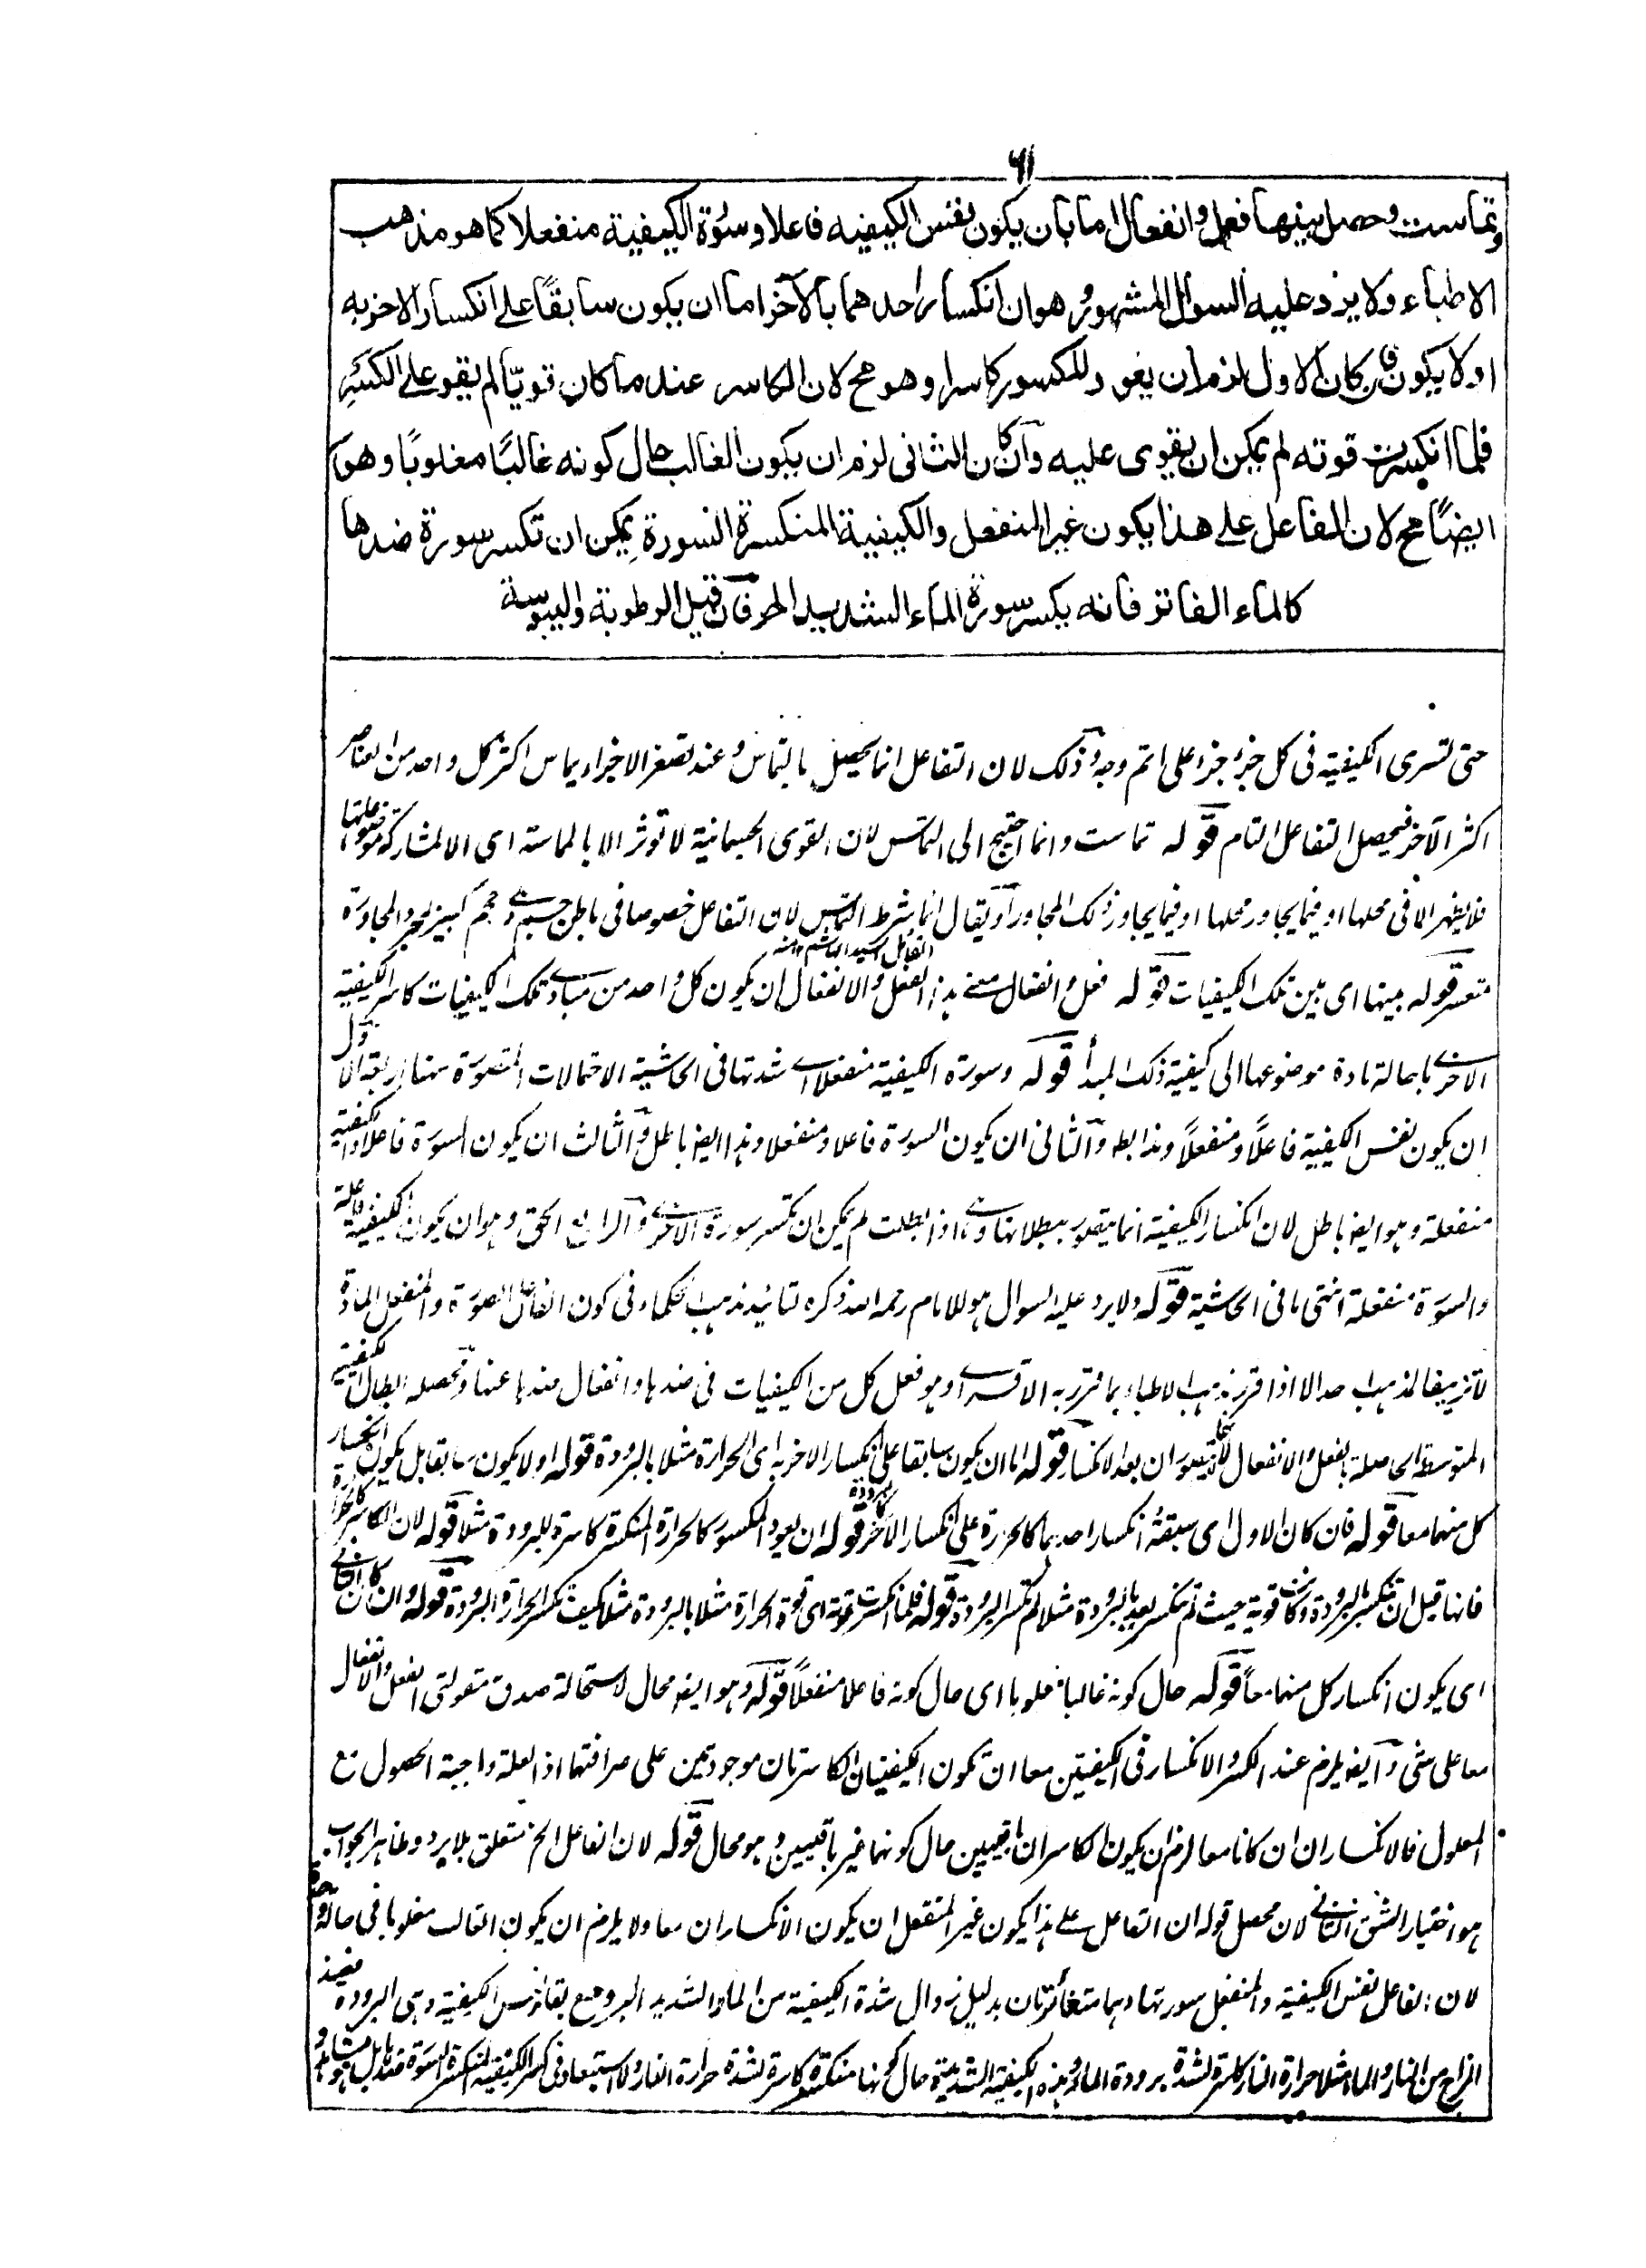 ٦١
وتماست وحصل بينها فعل وانفعال اما بان يكون نفس الكيفيه فاعلا وسؤرة الكيفية منفعلا كما هو مذهب
الاطباء ولا يرد عليه السوال المشهور وهو ان انكسار احدهما بالآخر اما ان يكون سابقًا على انكسار الاخر به
اولا يكون فان كان الاول لزم ان يعود المكسور كاسرا وهو مح لان الكاسر عند ما كان قويّا لم يقو على الكسر
فلما انكسرت قوته لم يمكن ان يقوى عليه وان كان الثانى لزم ان يكون الغالب حال كونه غالبًا مغلوبًا وهو
ايضًا مح لان الفاعل على هذا يكون غير المنفعل والكيفية المنكسرة السورة يمكن ان تكسر سورة ضدها
كالماء الفاتر فانه يكسر سورة الماء الشديد الحر فان قيل الرطوبة واليبوسة
حتى تسرى الكيفية فى كل جزء جزء على اتم وجه وذلك لان التفاعل انما يحصل بالتماس وعند تصغر الاجزاء يماس اكثر كل واحد من العناصر
اكثر الآخر فيحصل التفاعل التام قوله تماست وانما احتيج الى التماس لان القوى الجسمانية لا توثر الا بالمماسة اى الا لمشاركة موضوعاتها
فلا يظهر الا فى محلها او فيما يجاور محلها او فيما يجاور ذلك المجاور او يقال انما شرط التماس لان التفاعل خصوصا فى باطن جسم ذى حجم كبير بمجرد المجاورة
متعسر قوله بينها اى بين تلك الكيفيات قوله فعل وانفعال معنى هذا الفعل والانفعال ان يكون كل واحد من مبادى تلك الكيفيات كاسر الكيفية
الاخرى باحالة مادة موضوعها الى كيفية ذلك المبدأ قوله وسورة الكيفية منفعلا اى شدتها فى الحاشية الاحتمالات المتصورة ههنا اربعة الاول
ان يكون نفس الكيفية فاعلًا ومنفعلًا وهذا بط والثانى ان يكون السورة فاعلا ومنفعلا وهذا ايض باطل والثالث ان يكون السورة فاعلا والكيفية
منفعلة وهو ايض باطل لان انكسار الكيفية انما يتصور ببطلانها وهى اذا بطلت لم يمكن ان تكسر سورة الاخرى والرابع الحق وهو ان يكون الكيفية فاعلة
والسورة منفعلة انتهى ما فى الحاشية قوله ولا يرد عليه السوال هو للامام رحمه الله ذكره لتائيد مذهب الحكماء فى كون الفاعل الصورة والمنفعل المادة
لا تزييفا لمذهب اذا قرر مذهب الاطباء بما قرر به وهو فعل كل من الكيفيات فى ضدها وانفعال ضدها عنها ومحصله ابطال الكيفية
المتوسطة الحاصلة بالفعل والانفعال قوله اما ان يكون سابقا على انكسار الاخر به اى الحرارة مثلا بالبرودة قوله اولا يكون سابقا بل يكون انكسار
كل منهما معا قوله فان كان الاول اى سبقه انكسار احدهما كالحرارة على انكسار الآخر كالبرودة قوله ان يعود المكسور كالحرارة المنكسرة كاسرة للبرودة مثلا قوله لان الكاسر كالحرارة
فانها قبل ان تنكسر بالبرودة وكانت قوية حيث لم تنكسر بعد بالبرودة مثلا لم تكسر البرودة قوله فلما انكسرت قوته اى قوة الحرارة مثلا بالبرودة مثلا كيف تكسر الحرارة البرودة قوله وان كان الثانى
اى يكون انكسار كل منهما معًا قوله حال كونه غالبا مغلوبا اى حال كونه فاعلا منفعلًا قوله وهو ايض محال لاستحالة صدق مقولتى الفعل والانفعال
معا على شئ وايض يلزم عند الكسر والانكسار فى الكيفيتين معا ان تكون الكيفيتان الكاسرتان موجودتين على صرافتهما اذ العلة واجبة الحصول مع
المعلول فالانكساران ان كانا معا لزم ان يكون الكاسران باقيين حال كونهما غير باقيين وهو محال قوله لان الفاعل الخ متعلق بلا يرد وظاهر الجواب
هو اختيار الشق الثانى لان محصل قوله ان الفاعل على هذا يكون غير المنفعل ان يكون الانكساران معا ولا يلزم ان يكون الغالب مغلوبا فى حالة واحدة
لان الفاعل نفس الكيفية والمنفعل سورتها وهما متغائرتان بدليل زوال شدة الكيفية من الماء الشديد البرد مع بقاء نفس الكيفية وهى البرودة فعند
امتزاج من النار والماء مثلا حرارة النار كاسرة لشدة برودة الماء وهذه الكيفية حال كونها منكسرة كاسرة لشدة حرارة النار ولا استبعاد فى كسر الكيفية المنكسرة السورة ضدها